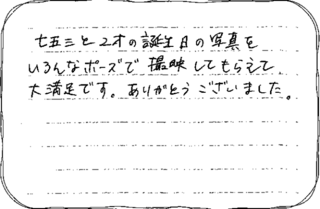 七五三と2才の誕生日の写真を
いろんなポーズで撮映してもらえて
大満足です。ありがとうございました。